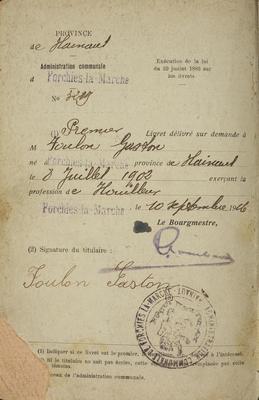 PROVINCE
de Hainaut
Administration communale
d Forchies-la-Marche
No
Exécution de la loi
du 10 juillet 1883 sur
les livrets
(1) Premier Livret délivré sur demande à
M Toulon Gaston
né à Forchies-la-Marche province de Hainaut
le 3 Juillet 1902 exerçant la
profession de Houilleur
Forchies-la-Marche, le 10 septembre
Le Bourgmestre,
(2) Signature du titulaire :
Toulon Gaston
FORCHIES-LA-MARCHE
(1) Indiquer si ce livret est le premier,
ni le titulaire ne sait pas écrire, cette
témoins.
Sceau de l'administration communale.